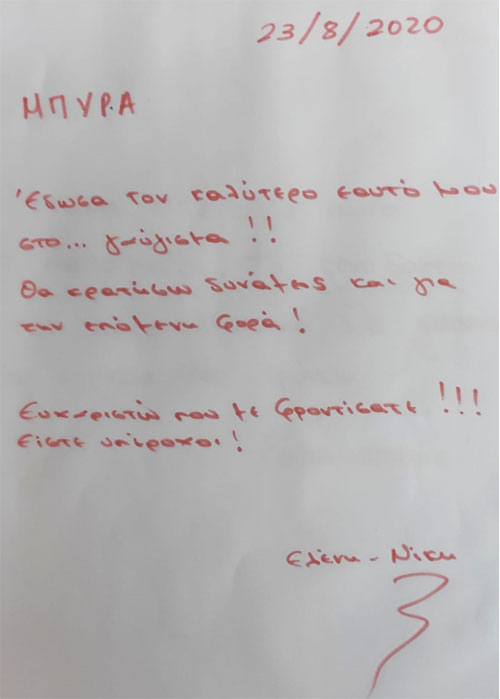 23/8/2020
ΜΠΥΡΑ
Έδωσα τον καλύτερο εαυτό μου
στο... γλύψιμα!!
Θα κρατήσω δυνάμεις και για
την επόμενη φορά!
Ευχαριστώ που με φροντίσατε!!!
Είστε υπέροχοι!
Ελένη - Νίκη